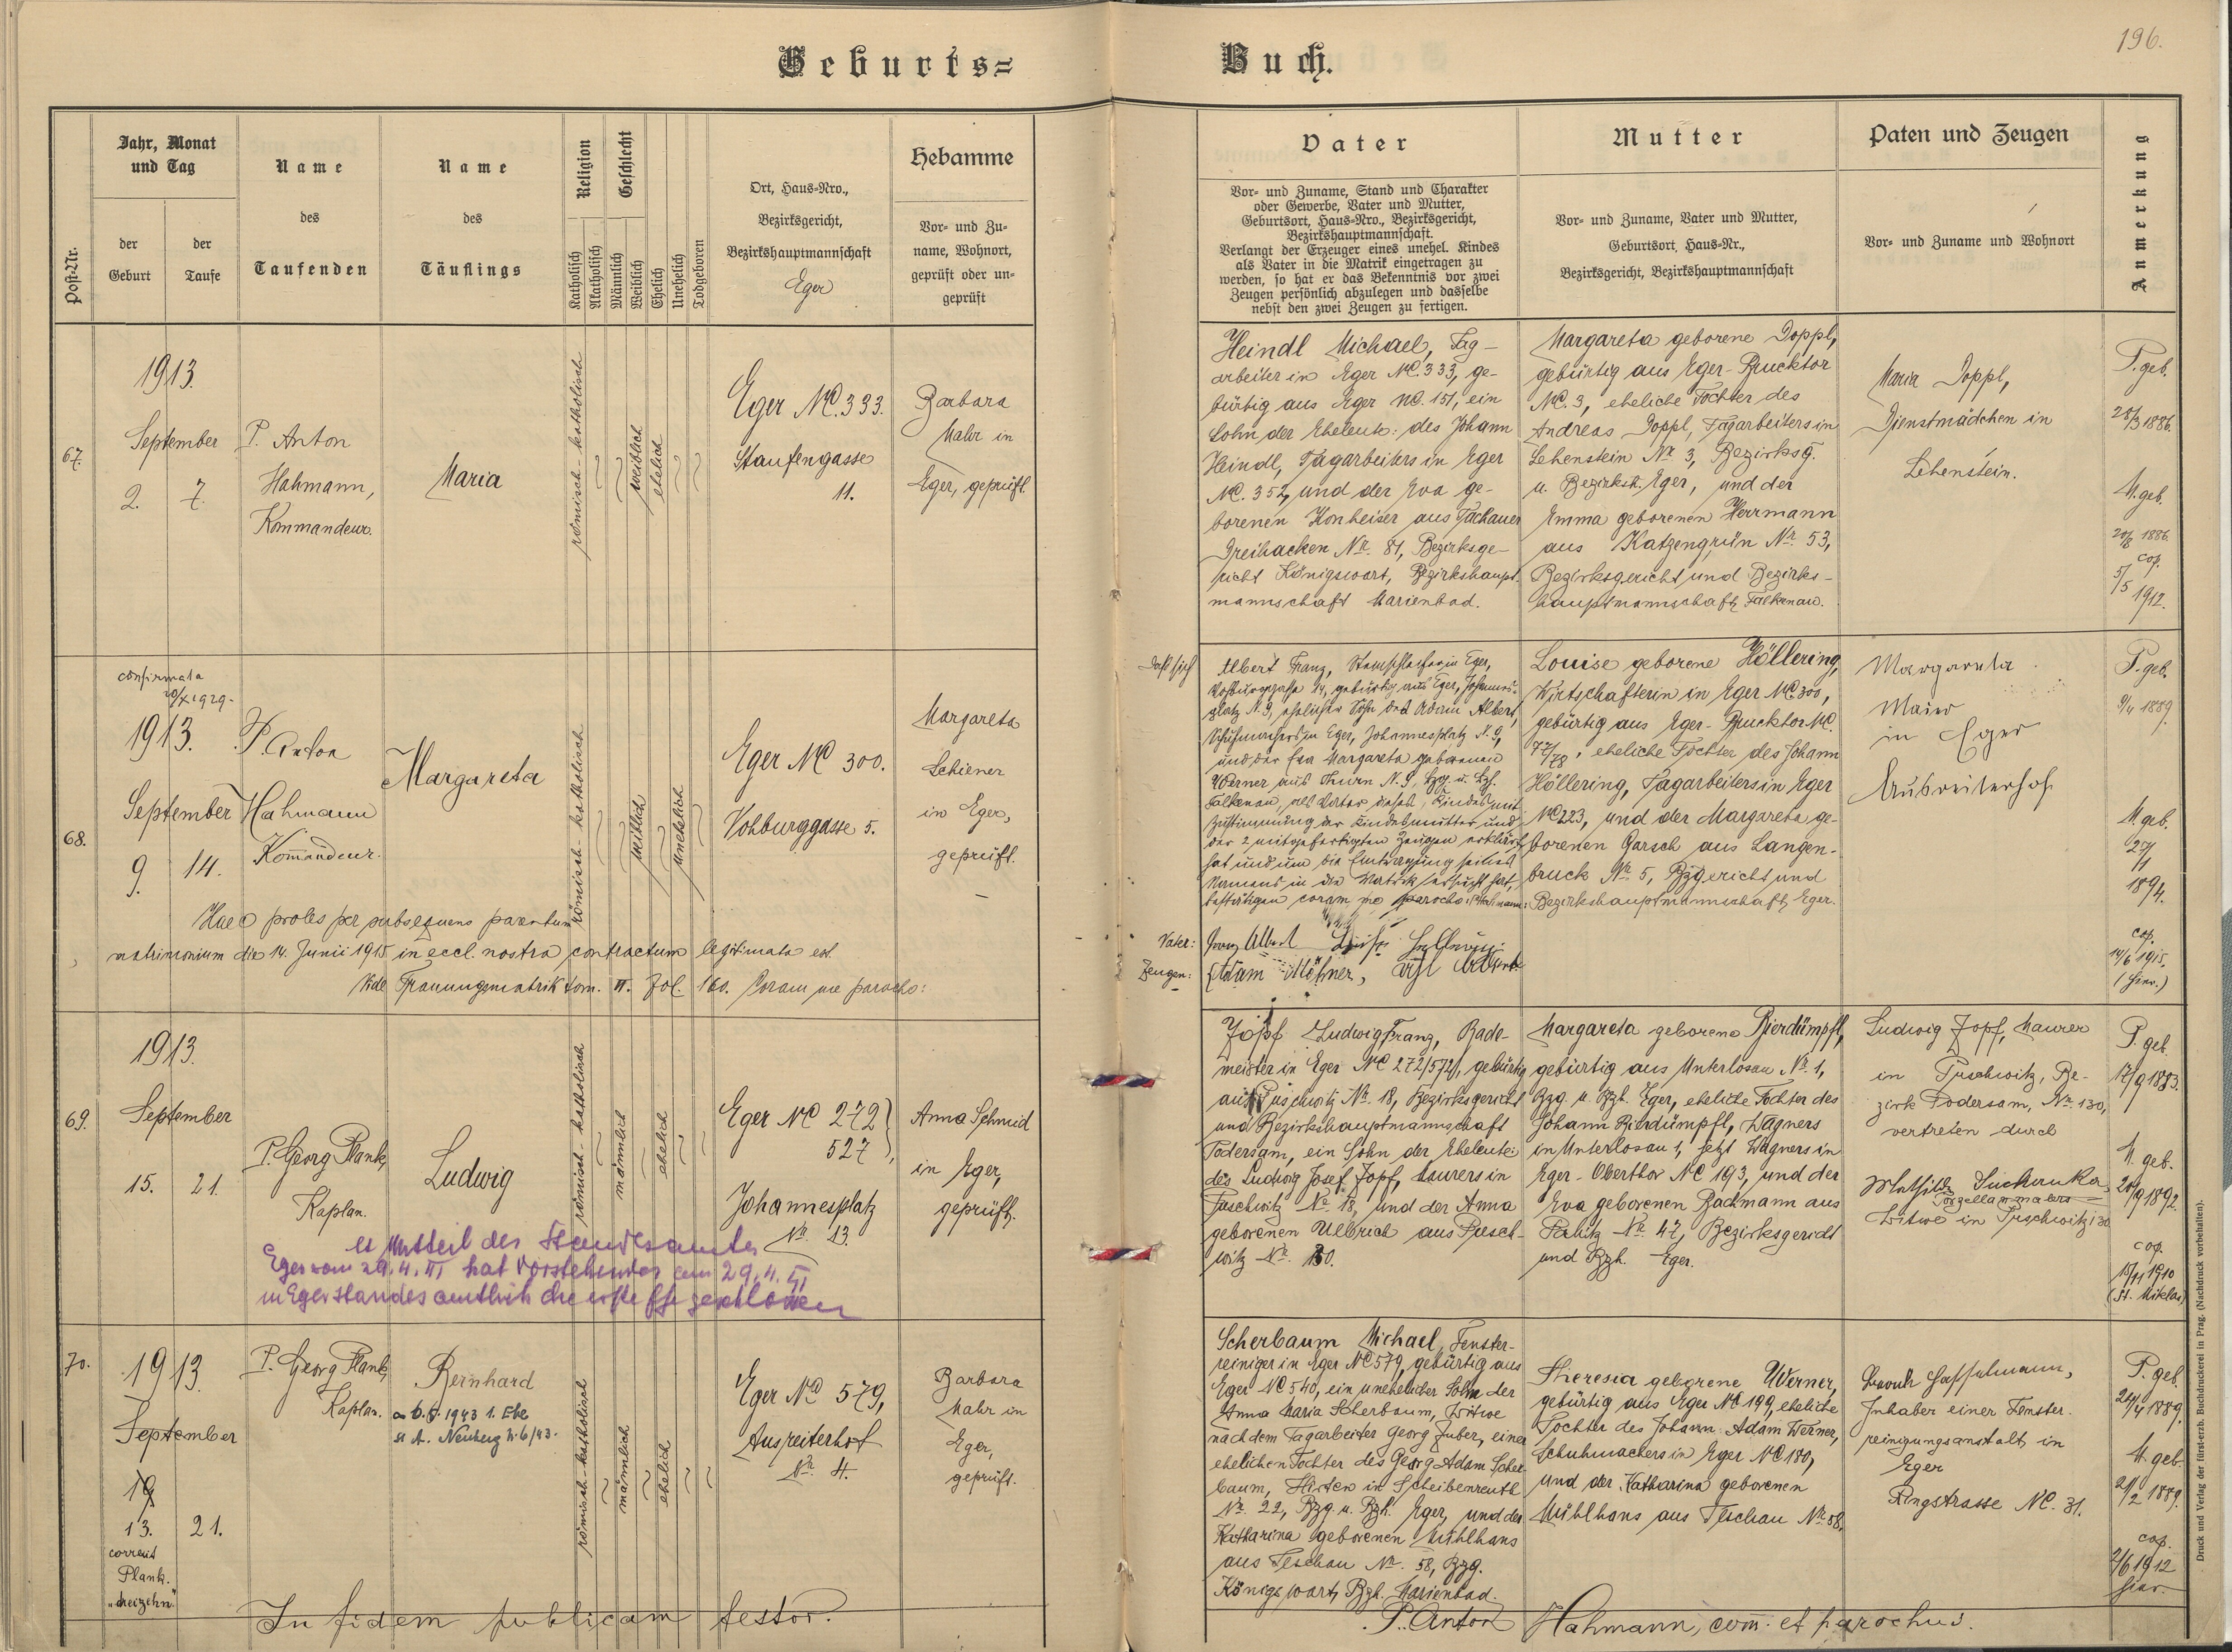 196.
Geburts=
Buch.
Post-Nr.
Jahr, Monat
und Tag
der
Geburt
der
Taufe
Name
des
Taufenden
Name
des
Täuflings
Religion
Katholisch
Akatholisch
Geschlecht
Männlich
Weiblich
Ehelich
Unehelich
Todgeboren
Ort, Haus-Nro.,
Bezirksgericht,
Bezirkshauptmannschaft
Eger
Hebamme
Vor- und Zu-
name, Wohnort,
geprüft oder un-
geprüft
Vater
Vor- und Zuname, Stand und Charakter
oder Gewerbe, Vater und Mutter,
Geburtsort, Haus-Nro., Bezirksgericht,
Bezirkshauptmannschaft.
Verlangt der Erzeuger eines unehel. Kindes
als Vater in die Matrik eingetragen zu
werden, so hat er das Bekenntnis vor zwei
Zeugen persönlich abzulegen und dasselbe
nebst den zwei Zeugen zu fertigen.
Mutter
Vor- und Zuname, Vater und Mutter,
Geburtsort, Haus-Nr.,
Bezirksgericht, Bezirkshauptmannschaft
Paten und Zeugen
Vor- und Zuname und Wohnort
Anmerkung
67.
1913.
September
2. 7.
P. Anton
Hahmann,
Kommandeur.
Maria
römisch-katholisch
weiblich
ehelich
Eger NC. 333.
Staufengasse
11.
Barbara
Mahr in
Eger, geprüft.
Heindl Michael, Tag-
arbeiter in Eger NC. 333, ge-
bürtig aus Eger NC. 151, ein
Sohn der Eheleute: des Johann
Heindl, Tagarbeiters in Eger
NC. 352, und der Eva ge-
borenen Konheiser aus Tachauer
Dreihacken Nr. 81, Bezirksge-
richt Königswart, Bezirkshaupt-
mannschaft Marienbad.
Margareta geborene Doppl,
gebürtig aus Eger-Brucktor
NC. 3, eheliche Tochter des
Andreas Doppl, Tagarbeiters in
Lehenstein Nr. 3, Bezirksg.
u. Bezirksh. Eger, und der
Emma geborenen Herrmann
aus Katzengrün Nr. 53,
Bezirksgericht und Bezirks-
hauptmannschaft Falkenau.
Maria Doppl,
Dienstmädchen in
Lehenstein.
P. geb.
28/3 1886.
M. geb.
20/8 1886.
cop.
5/5 1912.
68.
confirmata
20/X 1929.
1913.
September
9. 14.
P. Anton
Hahmann
Kommandeur.
Margareta
römisch-katholisch
weiblich
unehelich
Eger NC 300.
Vohburggasse 5.
Margareta
Schiener
in Eger,
geprüft.
Haec proles per subsequens parentum
matrimonium die 14. Junii 1915 in eccl. nostra contractum legitimata est.
Vide Trauungsmatrik tom. VI. Fol. 160. Coram me parocho:
Daß sich
Albert Franz, in Eger,
Vohburggasse 14, gebürtig aus Eger, Johannes-
platz N. 9, ehelicher Sohn des Adam Albert,
Schuhmachers in Eger, Johannesplatz N. 9,
und der Eva Margareta geborenen
Werner aus Thurn N. 9, Bzg. u. Bzh.
Falkenau, als Vater dieses Kindes mit
Zustimmung der Kindesmutter und
der 2 mitgefertigten Zeugen erklärt
hat und um die Eintragung seines
Namens in die Matrik ersucht hat,
bestätigen coram me parocho: P. Hahmann:
Vater: Franz Albert
Zeugen: Adam
Louise geborene Höllering,
Wirtschafterin in Eger NC. 300,
gebürtig aus Eger-Brucktor NC.
77/78, eheliche Tochter des Johann
Höllering, Tagarbeiters in Eger
NC 223, und der Margareta ge-
borenen Garsch aus Langen-
bruck Nr. 5, Bzgericht und
Bezirkshauptmannschaft Eger.
Margareta
Maier
in Eger
Ausreiterhof
P. geb.
9/4 1889.
M. geb.
27/1
1894.
cop.
14/6 1915.
(hier.)
69.
1913.
September
15. 21.
P. Georg Plank,
Kaplan.
Ludwig
römisch-katholisch
männlich
ehelich
Eger NC 272
527
Johannesplatz
Nr. 13.
Anna Schmid
in Eger,
geprüft.
lt Mitteil des Standesamtes
Eger vom 29.4.41 hat Vorstehender am 29.4.41
in Eger standesamtlich die erste Ehe geschlossen
Zopf Ludwig Franz, Bade-
meister in Eger NC 272/527, gebürtig
aus Puschwitz Nr. 18, Bezirksgericht
und Bezirkshauptmannschaft
Podersam, ein Sohn der Eheleute:
des Ludwig Josef Zopf, Maurers in
Puschwitz Nr. 18, und der Anna
geborenen Ulbrich aus Pusch-
witz Nr. 30.
Margareta geborene Bierdümpfl,
gebürtig aus Unterlosau Nr. 1,
Bzg. u. Bzh. Eger, eheliche Tochter des
Johann Bierdümpfl, Wagners
in Unterlosau 1, jetzt Wagners in
Eger-Oberthor NC 193, und der
Eva geborenen Bachmann aus
Palitz Nr. 47, Bezirksgericht
und Bzh. Eger.
Ludwig Zopf, Maurer
in Puschwitz, Be-
zirk Podersam, Nr. 130,
vertreten durch
Mathilde Suchanka,
Porzellanmalers
Witwe in Puschwitz 130
P. geb.
17/9 1883.
M. geb.
20/9 1892.
cop.
15/11 1910
(St. Niklas)
70.
1913.
September
19
13. 21.
correxit
Plank.
„dreizehn"
P. Georg Plank,
Kaplan.
Reinhard
am 6.5.1943 1. Ehe
St A. Neuberg N. 6/43.
römisch-katholisch
männlich
ehelich
Eger NC 579,
Ausreiterhof
Nr. 4.
Barbara
Mahr in
Eger,
geprüft.
Scherbaum Michael, Fenster-
reiniger in Eger NC 579, gebürtig aus
Eger NC 540, ein unehelicher Sohn der
Anna Maria Scherbaum, Witwe
nach dem Tagarbeiter Georg Zuber, einer
ehelichen Tochter des Georg Adam Scher-
baum, Hirten in Scheibenreuth
Nr. 22, Bzg. u. Bzh. Eger, und der
Katharina geborenen Mühlhans
aus Teschau Nr. 58, Bzg.
Königswart, Bzh. Marienbad.
Theresia geborene Werner,
gebürtig aus Eger NC 199, eheliche
Tochter des Johann Adam Werner,
Schuhmachers in Eger NC 180,
und der Katharina geborenen
Mühlhans aus Teschau Nr. 58.
Hasselmann,
Inhaber einer Fenster-
reinigungsanstalt in
Eger
Ringstrasse NC. 31.
P. geb.
24/4 1889.
M. geb.
21/2 1889.
cop.
2/6 1912
hier.
In fidem publicam testor.
P. Anton Hahmann, com. et parochus.
Druck und Verlag der fürst-erzb. Buchdruckerei in Prag. (Nachdruck vorbehalten).